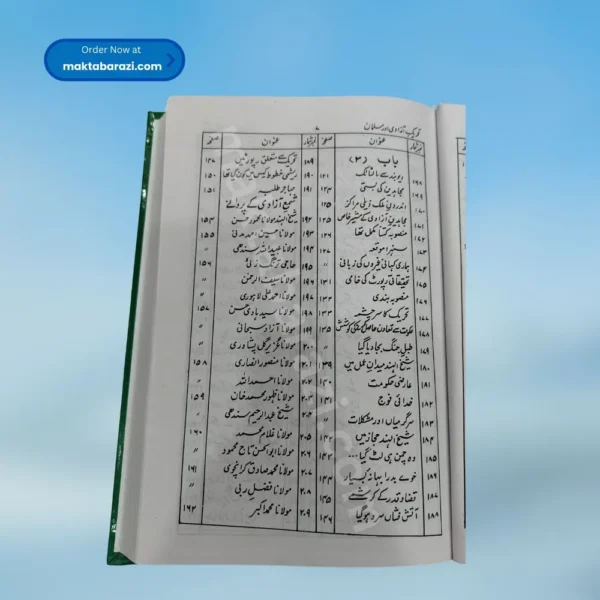 Order Now at
maktabarazi.com
تحریکِ آزادی اور مسلمان
۷
نمبر شمار عنوان صفحہ نمبر شمار عنوان صفحہ
باب (۳)
۱۶۸ دیوبند سے اٹک ۱۲۱
۱۶۹ مجاہدین کی بستی ۱۲۴
۱۷۰ اندرونِ ملک ذیلی مراکز ۱۲۵
۱۷۱ مجاہدینِ آزادی کے مشیرِ خاص ۱۲۵
۱۷۲ منصوبہ کتنا مکمل تھا ۱۲۶
سنہرا موقعہ ۱۲۷
۱۷۴ ہماری کہانی غیروں کی زبانی
تحقیقاتی رپورٹ کی خامی ۱۳۱
۱۷۶ منصوبہ بندی ۱۳۲
۱۷۷ تحریک کا سرچشمہ ۱۳۳
۱۷۸ حکومت سے تعاون حاصل کرنے کی کوشش ۱۳۵
۱۷۹ طبلِ جنگ بجا دیا گیا
۱۸۰ شیخ الہند میدانِ عمل میں ۱۳۹
۱۸۱ عارضی حکومت ۱۴۰
۱۸۲ خدائی فوج ۱۴۱
۱۸۳ سرگرمیاں اور مشکلات
۱۸۴ شیخ الہند حجاز میں ۱۴۲
۱۸۵ وہ چمن ہی لٹ گیا... ۱۴۳
خوئے بد را بہانہ بسیار ۱۴۴
۱۸۷ قضا و قدر کے کرشمے ۱۴۵
۱۸۸ آتش فشاں سرد ہو گیا ۱۴۶
۱۸۹ تحریک سے متعلق رپورٹیں ۱۴۷
۱۹۰ ریشمی خطوط کیس میں کون کیا تھا ۱۵۰
۱۹۱ مہاجر طلبہ ۱۵۱
شمعِ آزادی کے پروانے
۱۹۲ شیخ الہند مولانا محمود حسن ۱۵۴
۱۹۳ مولانا حسین احمد مدنی ۱۵۵
۱۹۴ مولانا عبیداللہ سندھی ״
۱۹۵ حاجی ترنگ زئی ۱۵۶
۱۹۶ مولانا سیف الرحمٰن ״
۱۹۷ مولانا احمد علی لاہوری ״
۱۹۸ مولانا سید ہادی حسن ۱۵۷
۱۹۹ مولانا آزاد سبحانی ״
۲۰۰ مولانا عزیر گل پشاوری ״
۲۰۱ مولانا منصور انصاری ۱۵۸
۲۰۲ مولانا احمد اللہ ״
۲۰۳ مولانا ظہور محمد خان ۱۵۹
۲۰۴ شیخ عبدالرحیم سندھی ״
۲۰۵ مولانا غلام محمد ۱۶۰
۲۰۶ مولانا ابوالحسن تاج محمود ״
۲۰۷ مولانا محمد صادق کراچوی ۱۶۱
۲۰۸ مولانا فضل ربی ״
۲۰۹ مولانا محمد اکبر ۱۶۲